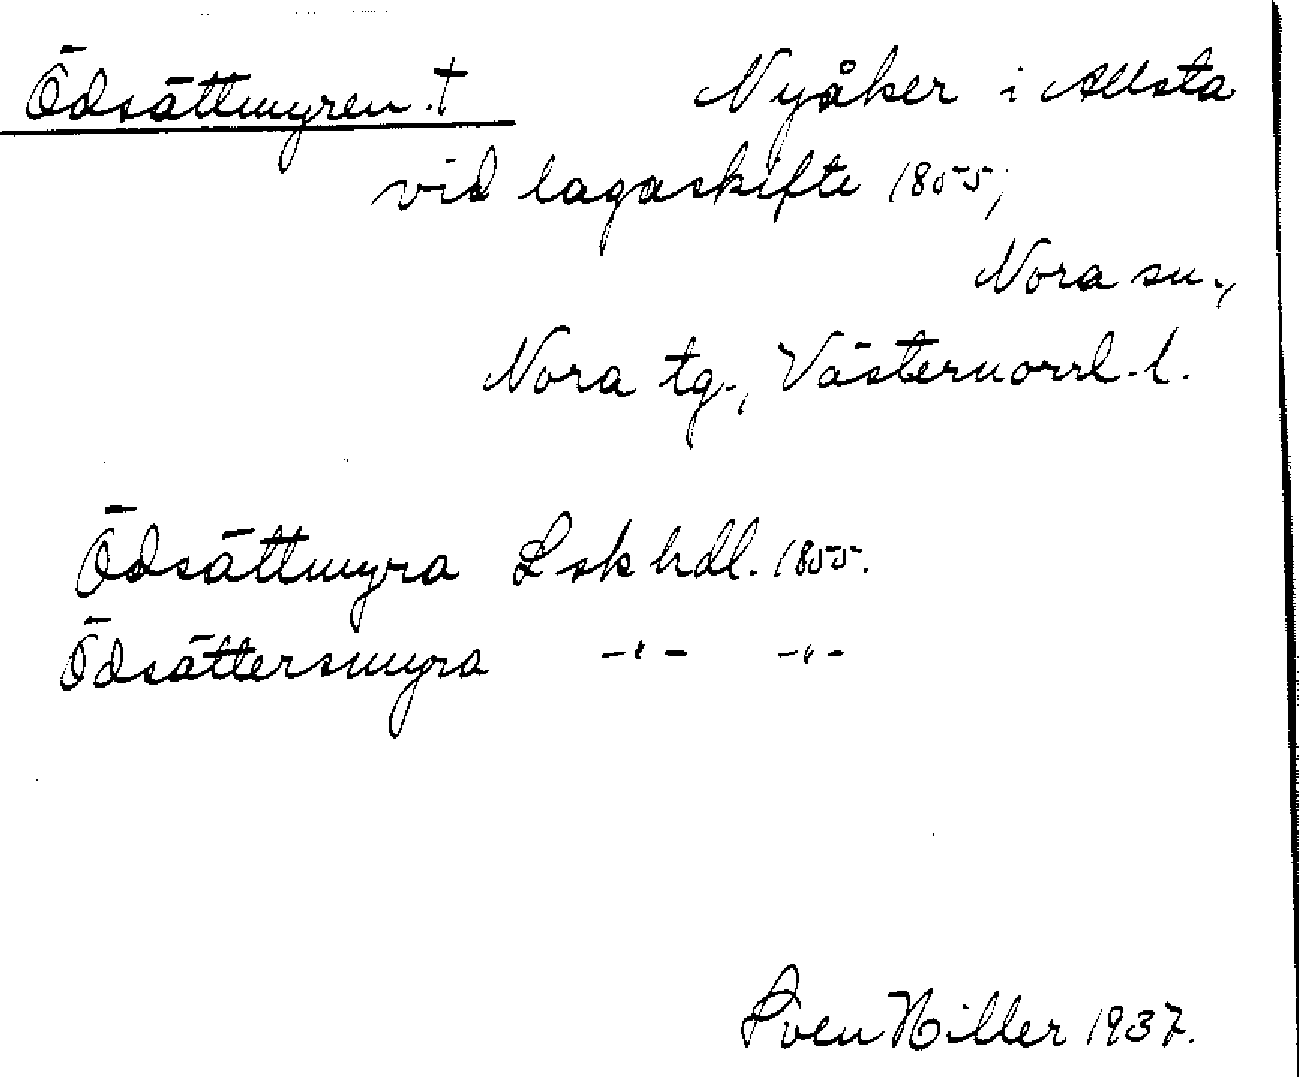 Ödsättmyren. † Nyåker i Allsta
vid lagaskifte 1855,
Nora sn.,
Nora tg., Västernorrl. l.
Ödsättmyra Lskhdl. 1855.
Ödsättersmyra -"- -"-
Sven Hiller 1937.